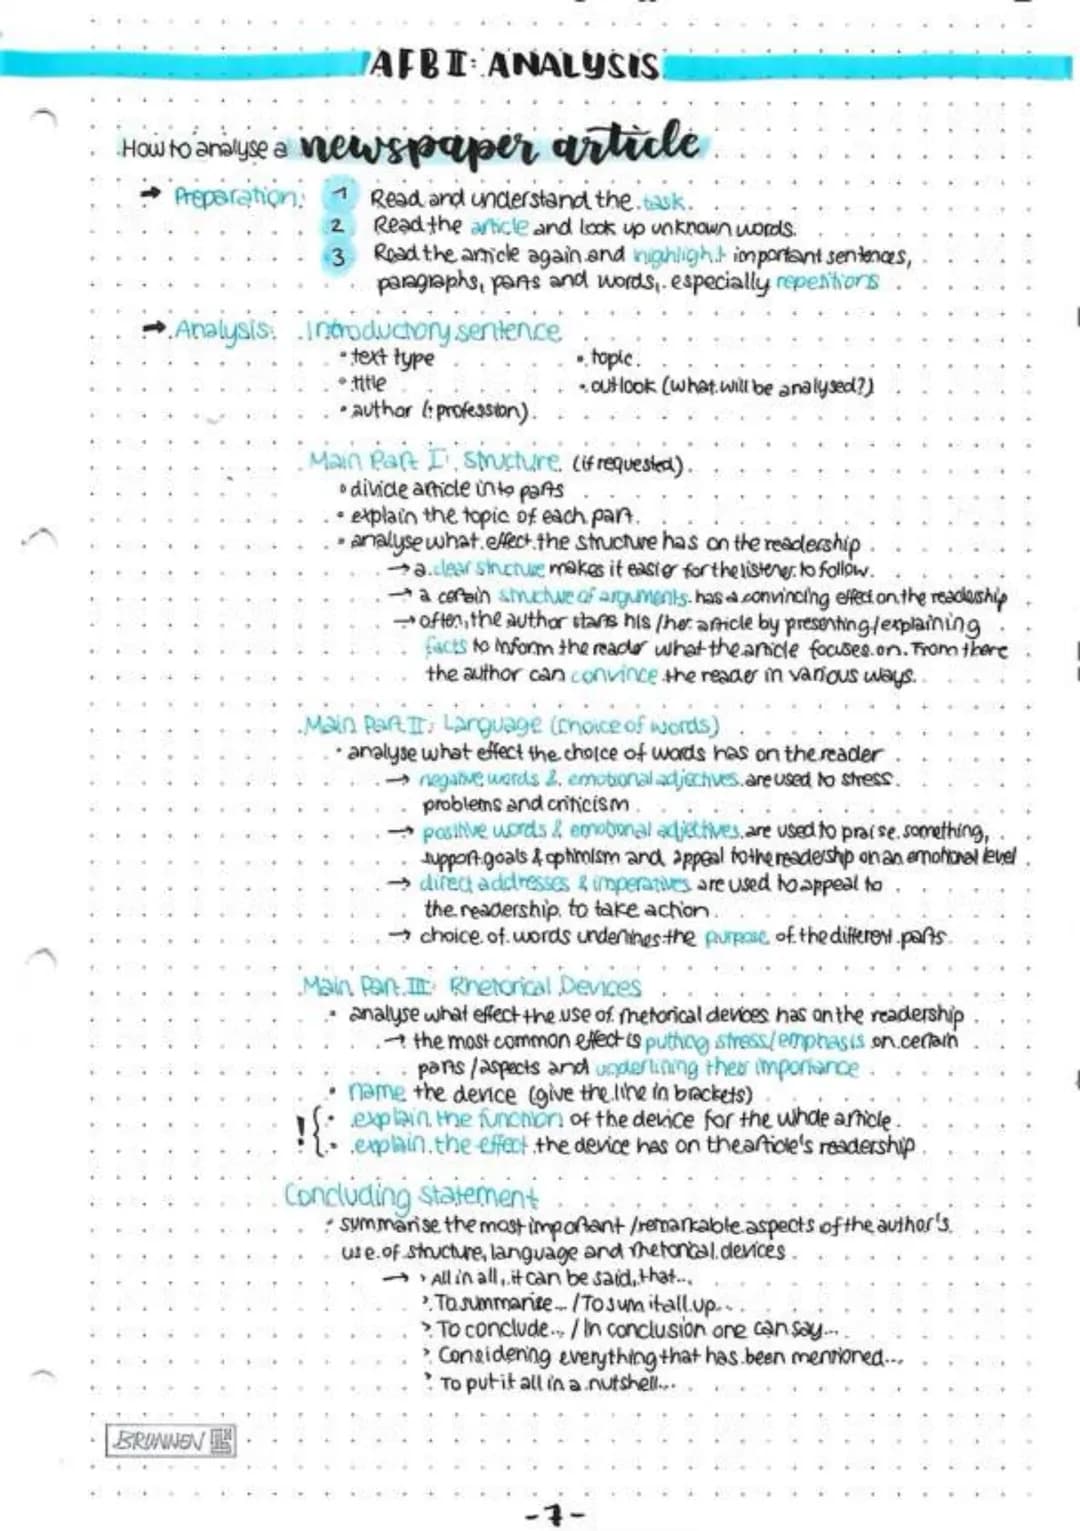 AFB II: ANALYSIS
How to analyse a newspaper article
→ Preparation: 1 Read and understand the task.
2 Read the article and look up unknown words.
3 Read the article again and highlight important sentences,
paragraphs, parts and words, especially repetitions
→ Analysis: Introductory sentence
• text type • topic
• title • outlook (what will be analysed?)
• author (+ profession)
Main Part I: Structure (if requested)
• divide article into parts
• explain the topic of each part.
• analyse what effect the structure has on the readership
→ a clear structure makes it easier for the listener to follow.
→ a certain structure of arguments has a convincing effect on the readership
→ often, the author starts his/her article by presenting/explaining
facts to inform the reader what the article focuses on. From there
the author can convince the reader in various ways.
Main Part II: Language (choice of words)
• analyse what effect the choice of words has on the reader
→ negative words & emotional adjectives are used to stress
problems and criticism
→ positive words & emotional adjectives are used to praise something,
support goals & optimism and appeal to the readership on an emotional level
→ direct addresses & imperatives are used to appeal to
the readership to take action
→ choice of words underlines the purpose of the different parts.
Main Part III: Rhetorical Devices
• analyse what effect the use of rhetorical devices has on the readership
→ the most common effect is putting stress/emphasis on certain
parts/aspects and underlining their importance
• name the device (give the line in brackets)
! { • explain the function of the device for the whole article.
• explain the effect the device has on the article's readership
Concluding statement
• summarise the most important/remarkable aspects of the author's
use of structure, language and rhetorical devices
→ > All in all, it can be said, that...
> To summarize... / To sum it all up...
> To conclude... / In conclusion one can say...
> Considering everything that has been mentioned...
> To put it all in a nutshell...
BRUNNEN
-7-